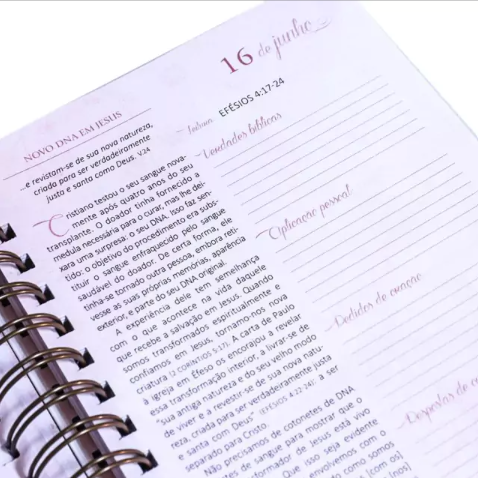 16 de junho
NOVO DNA EM JESUS
...e revistam-se de sua nova natureza,
criada para ser verdadeiramente
justa e santa como Deus. V.24
Cristiano testou o seu sangue nova-
mente após quatro anos do seu
transplante. O doador tinha fornecido a
medula necessária para o curar, mas lhe dei-
xara uma surpresa: o seu DNA. Isso faz sen-
tido: o objetivo do procedimento era subs-
tituir o sangue enfraquecido pelo sangue
saudável do doador. De certa forma, ele
tinha-se tornado outra pessoa, embora reti-
vesse as suas próprias memórias, aparência
exterior, e parte do seu DNA original.
A experiência dele tem semelhança
com o que acontece na vida daquele
que recebe a salvação em Jesus. Quando
confiamos em Jesus, tornamo-nos nova
somos transformados espiritualmente e
criatura (2 CORÍNTIOS 5:17). A carta de Paulo
à igreja em Éfeso os encorajou a revelar
essa transformação interior, a livrar-se de
"sua antiga natureza e do seu velho modo
de viver e a revestir-se de sua nova natu-
reza, criada para ser verdadeiramente justa
e santa com Deus" (EFÉSIOS 4:22-24): a ser
separado para Cristo.
Não precisamos de cotonetes de DNA
tes de sangue para mostrar que o
sformador de Jesus está vivo
Que isso seja evidente
envolvemos com o
como somos
[com os]
[nos]
Leitura EFÉSIOS 4:17-24
Verdades bíblicas
Aplicação pessoal
Pedidos de oração
Respostas de o